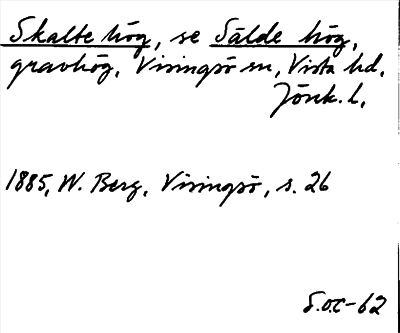 Skalte hög, se Sälde hög,
gravhög, Visingsö sn, Vista hd,
Jönk. l,
1885, W. Berg, Visingsö, s. 26
S.O.C-62